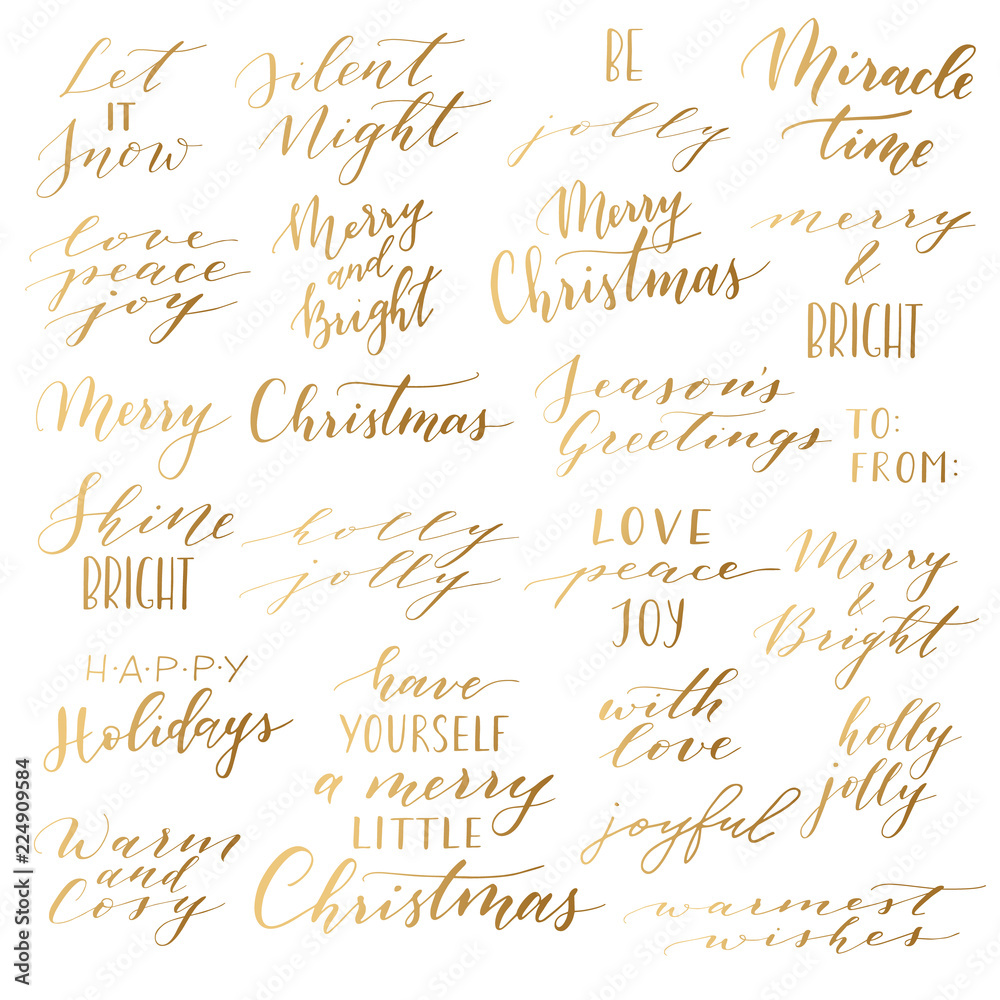 Let
IT
Snow
Silent
Night
BE
jolly
Miracle
time
love
peace
joy
Merry
and
Bright
Merry
Christmas
merry
&
BRIGHT
Merry Christmas
Season's
Greetings
TO:
FROM:
Shine
BRIGHT
holly
jolly
LOVE
peace
JOY
Merry
&
Bright
H·A·P·P·Y
Holidays
have
YOURSELF
a merry
LITTLE
Christmas
with
love
holly
jolly
joyful
Warm
and
Cosy
warmest
wishes
Adobe Stock | #224909584